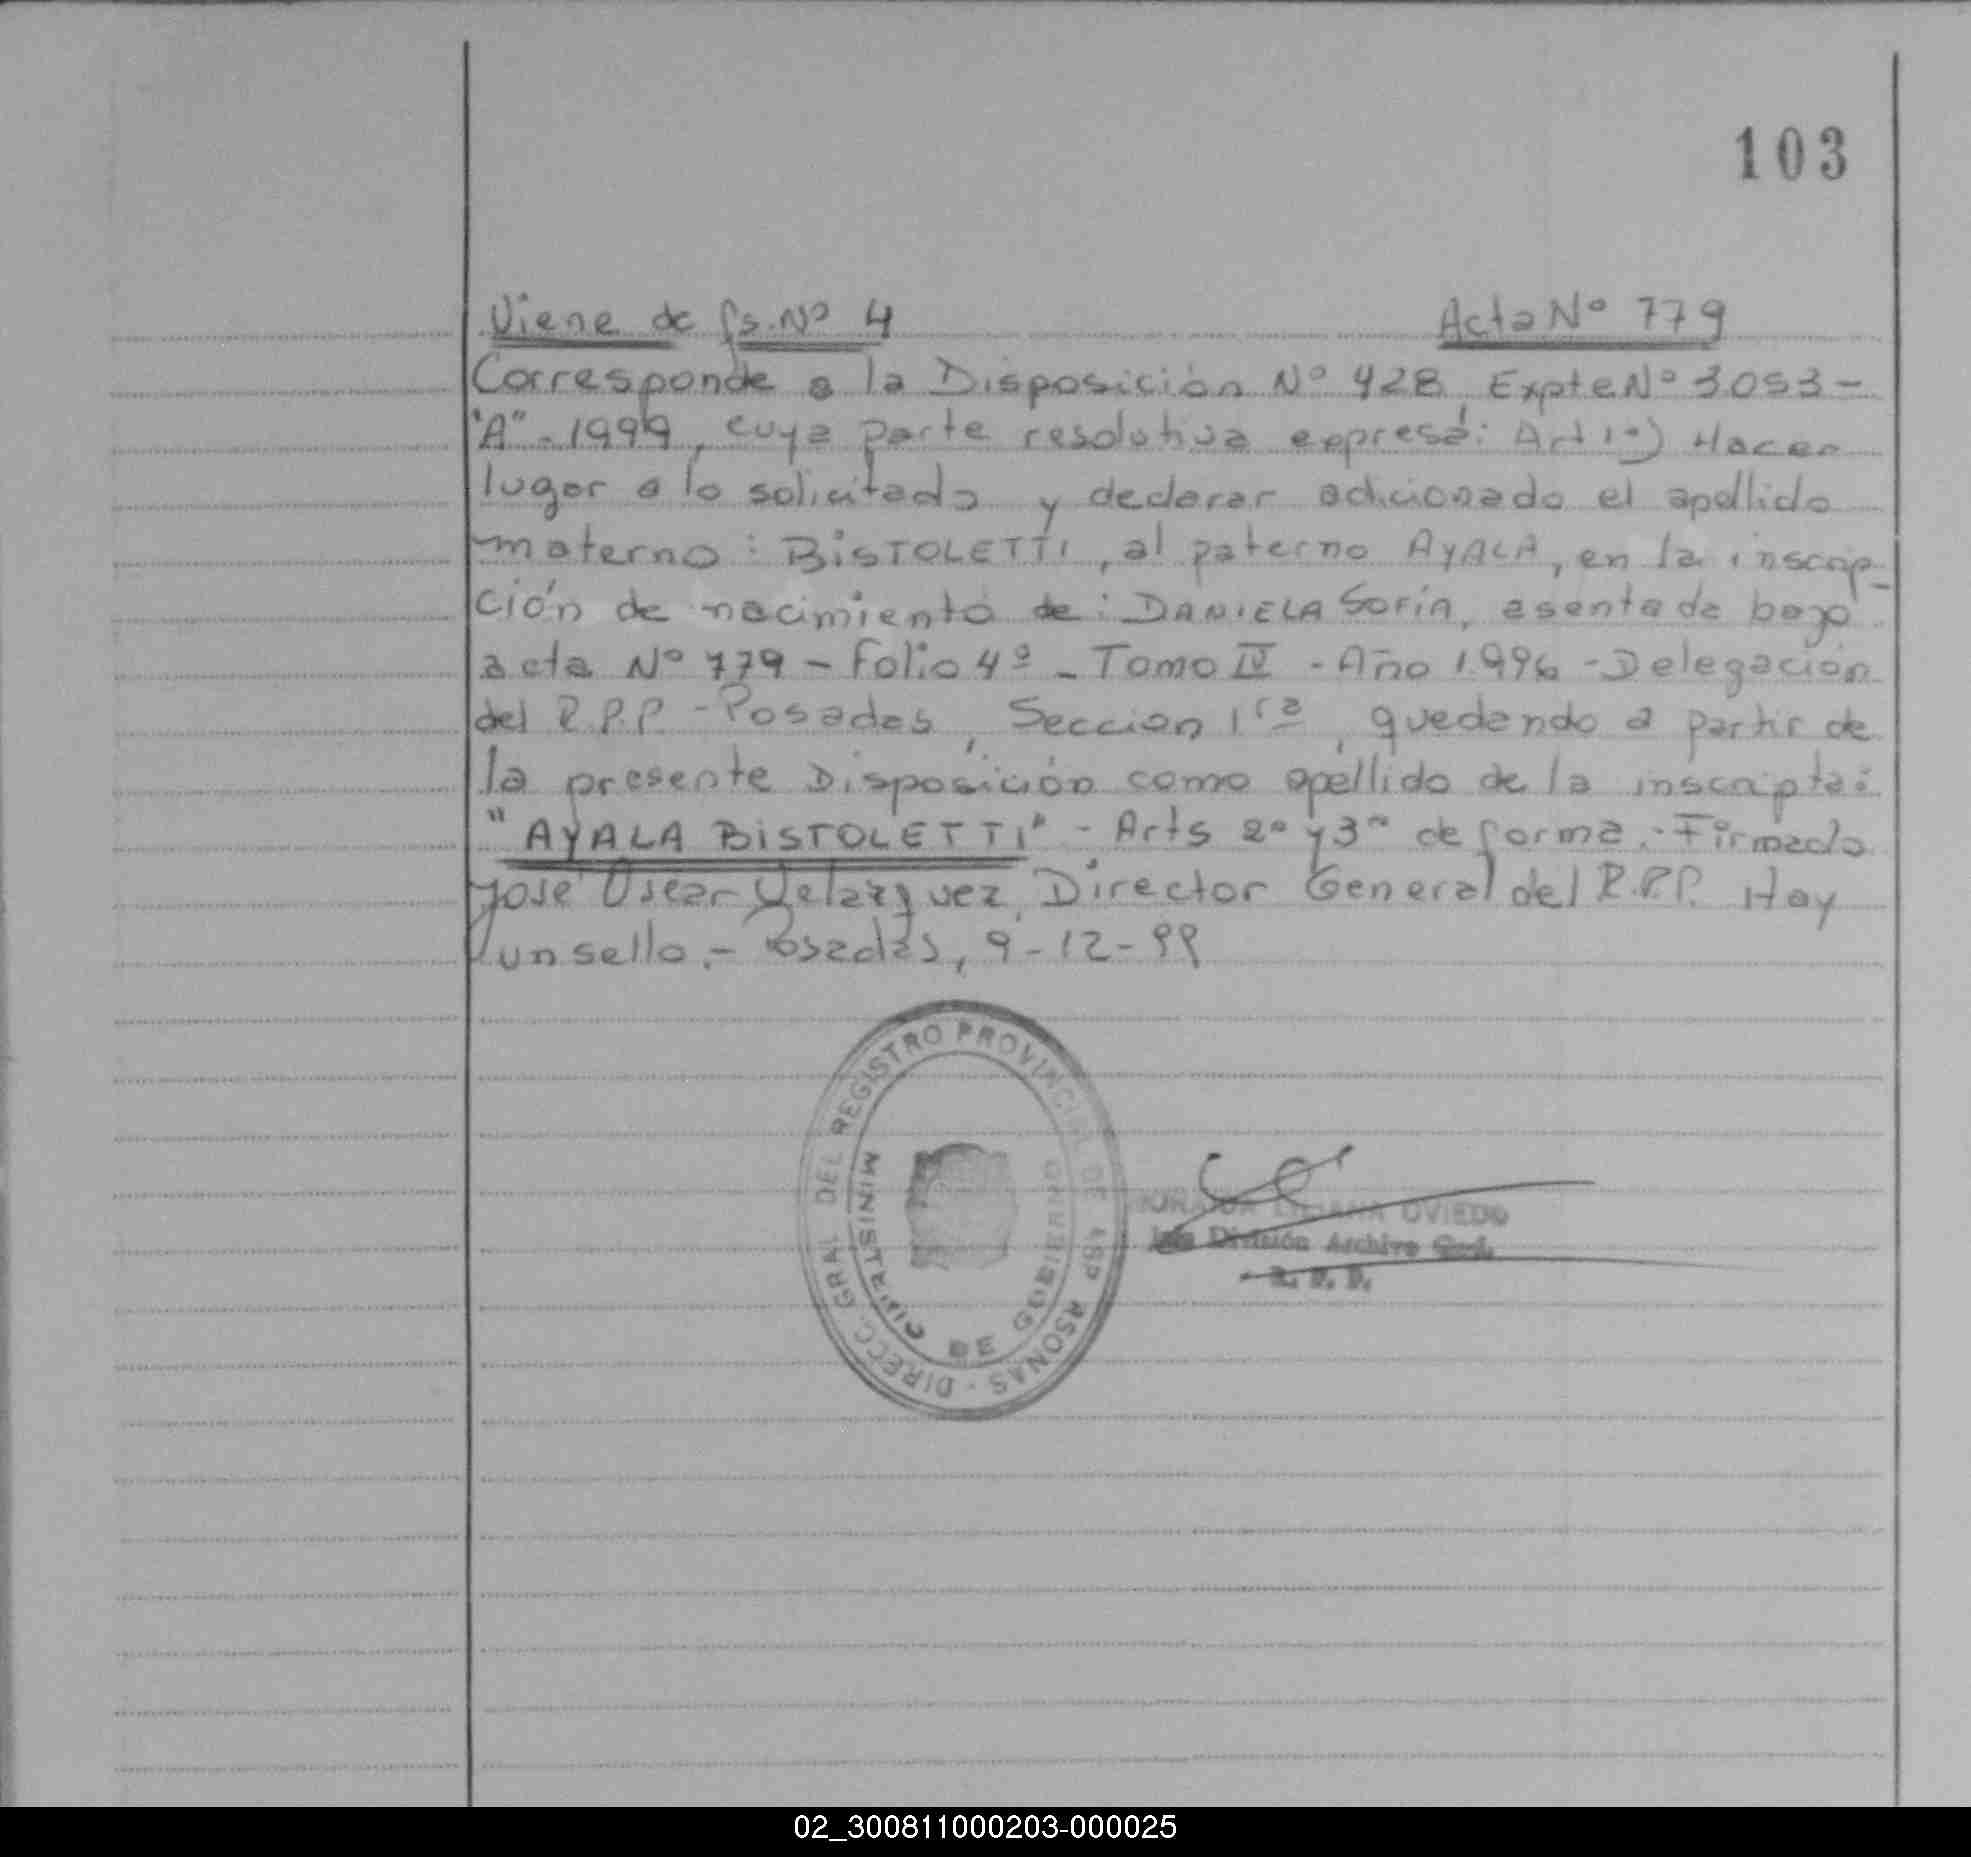 103
Viene de fs. Nº 4 Acta Nº 779
Corresponde a la Disposición Nº 428 Expte Nº 3053-
"A" - 1999, cuya parte resolutiva expresa: Art 1º) Hacer
lugar a lo solicitado y declarar adicionado el apellido
materno: BISTOLETTI, al paterno AYALA, en la inscrip-
ción de nacimiento de: DANIELA SOFÍA, asentada bajo
acta Nº 779 - Folio 4º - Tomo IV - Año 1.996 - Delegación
del R.P.P. - Posadas, Sección 1ra, quedando a partir de
la presente Disposición como apellido de la inscripta:
"AYALA BISTOLETTI" - Arts 2º y 3º de forma. - Firmado
José Oscar Velazquez, Director General del R.P.P. Hay
un sello. - Posadas, 9-12-99
DIRECC. GRAL DEL REGISTRO PROVINCIAL DE LAS PERSONAS
MINISTERIO DE GOBIERNO
LILIANA OVIEDO
División Archivo Gral.
R. P. P.
02_300811000203-000025